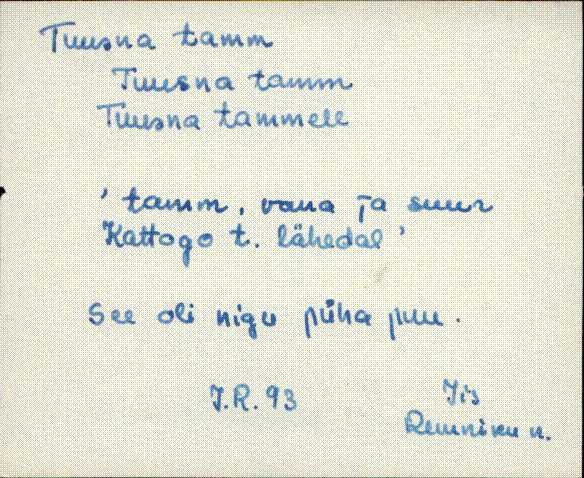 Tuusna tamm
Tuusna tamm
Tuusna tammele
' tamm, vana ja suur
Kattogo t. lähedal '
See oli nigu püha puu.
J.R. 93
Iis
Remniku n.